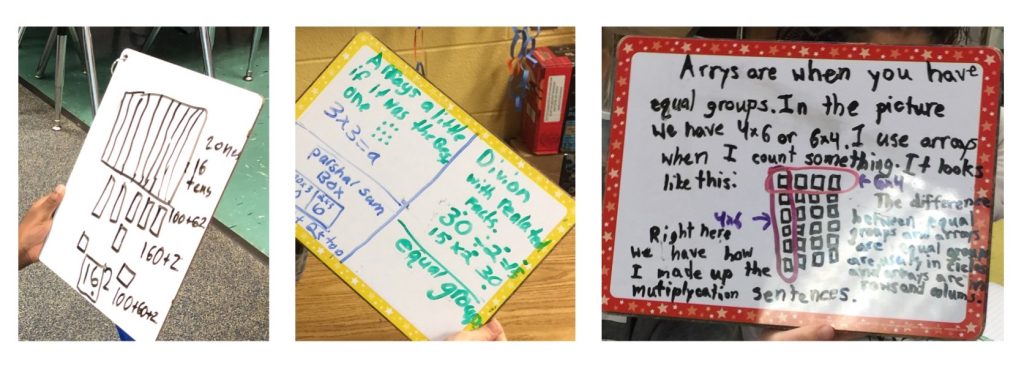 2 ones
16
tens
100+62
160+2
162
100+60+2
Arrays a little
if it was the
one
3x3=9
parshal sum
Box
6
Divion
with realated
facts.
30÷2=15
15x2=30
equal groups
Arrys are when you have
equal groups. In the picture
we have 4x6 or 6x4. I use arrays
when I count something. It looks
like this.
6x4
4x6
Right here
we have how
I made up the
mutiplycation sentences.
The difference
between equal
groups and arrays
are equal groups
are usaly in circles
and arrays are in
rows and colums.